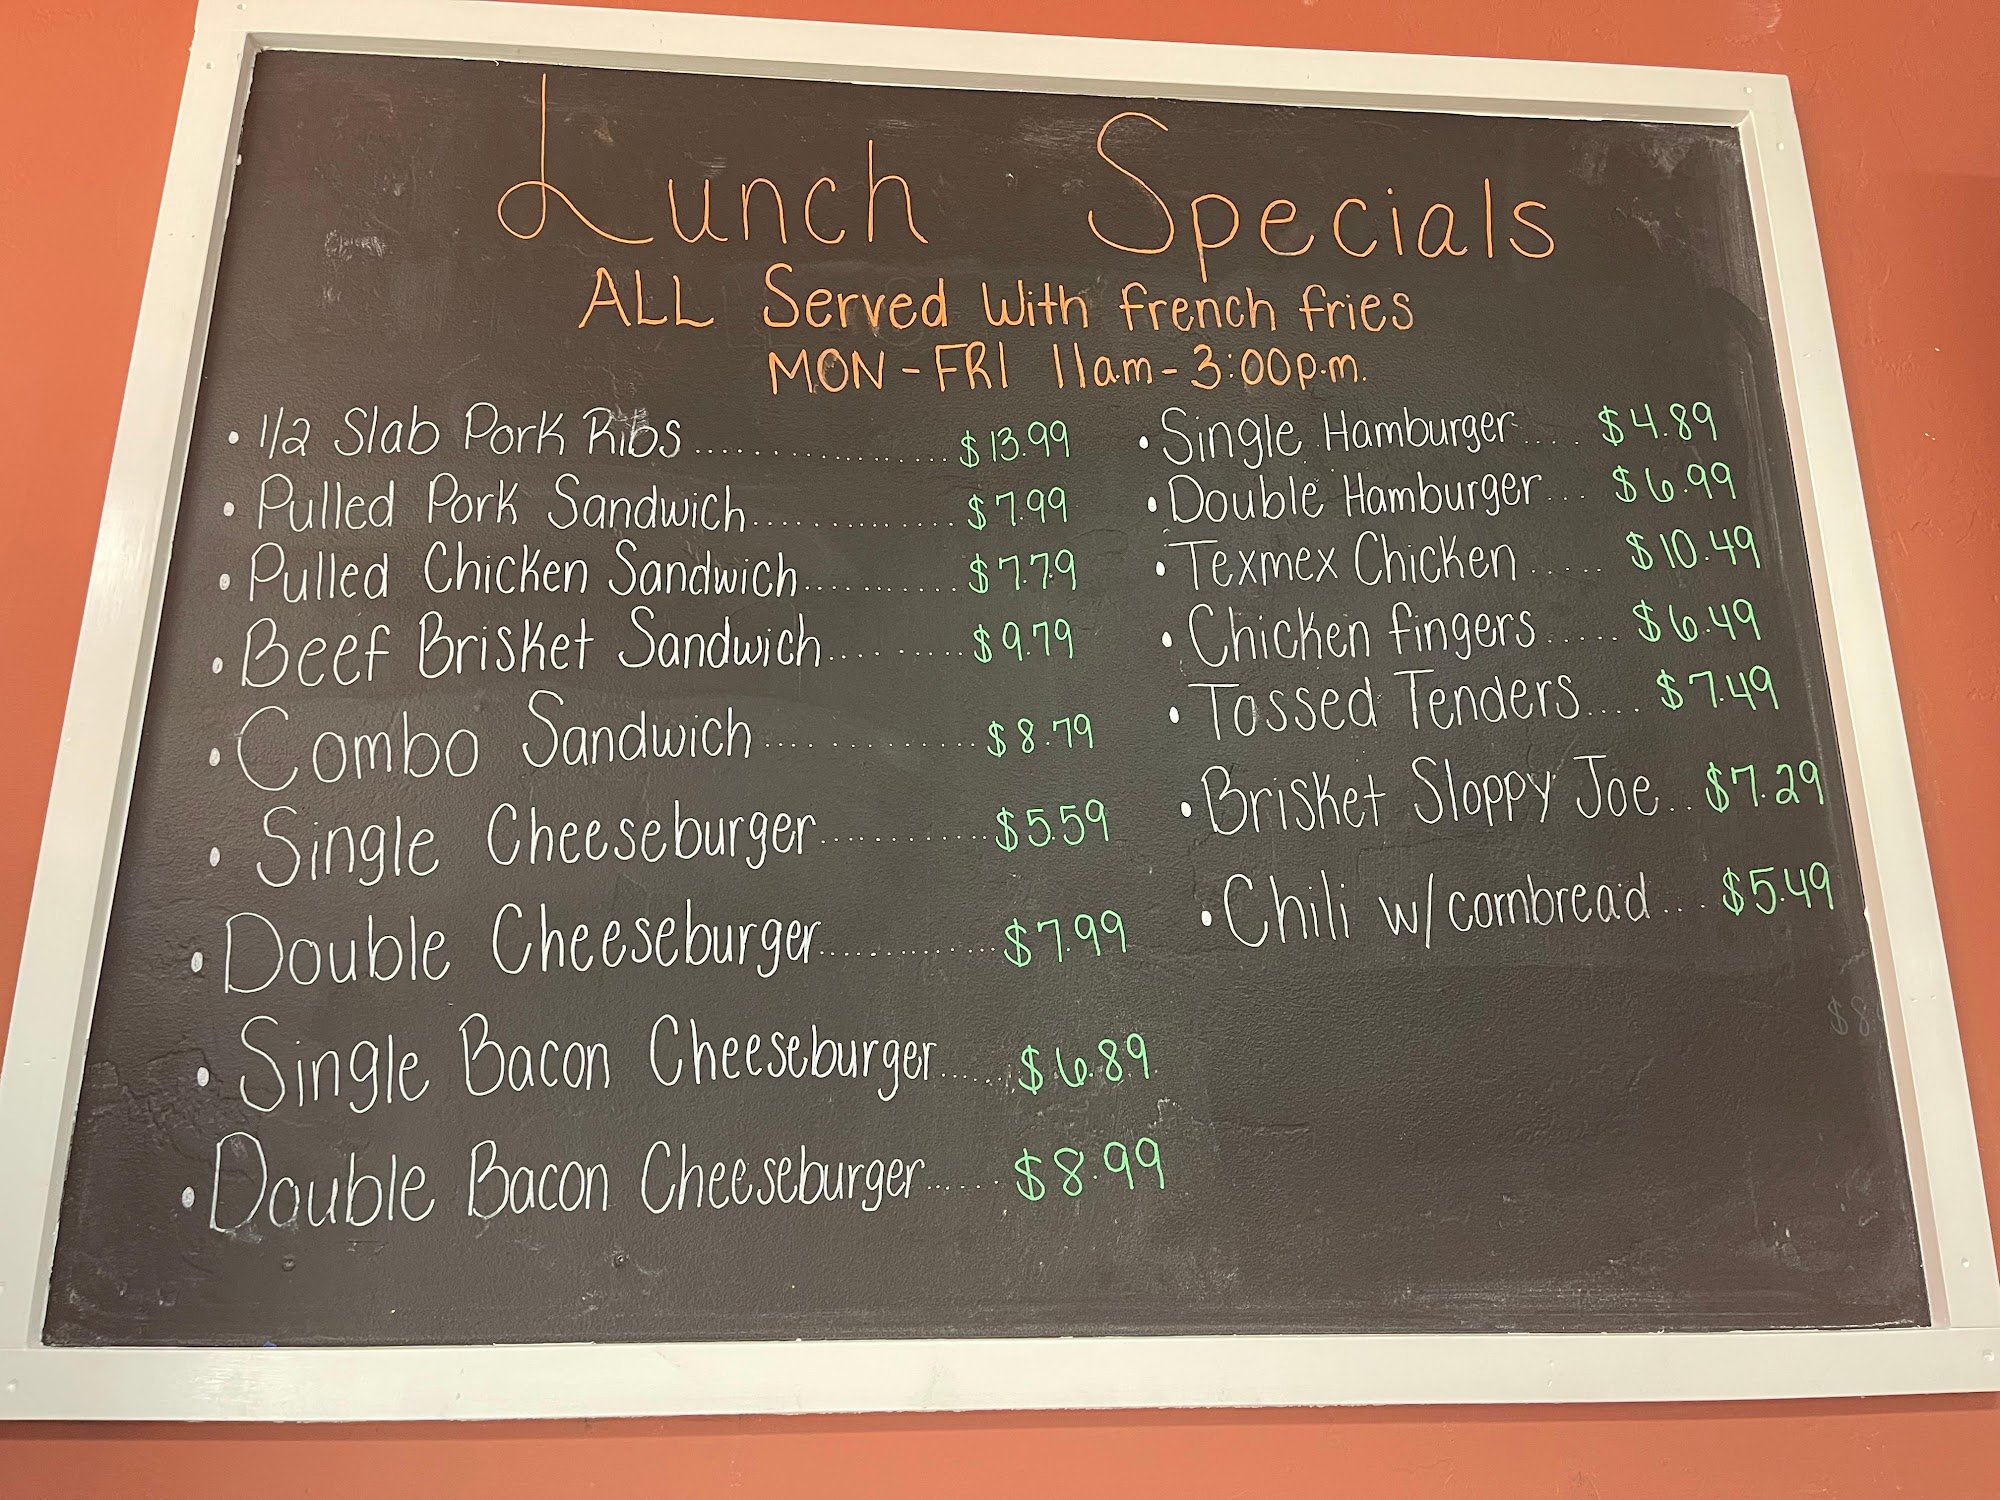 Lunch Specials
ALL Served with french fries
MON-FRI 11am-3:00p.m.
• 1/2 Slab Pork Ribs.................. $13.99
• Pulled Pork Sandwich............... $7.99
• Pulled Chicken Sandwich........... $7.79
• Beef Brisket Sandwich.......... $9.79
• Combo Sandwich.............. $8.79
• Single Cheeseburger............ $5.59
• Double Cheeseburger............ $7.99
• Single Bacon Cheeseburger..... $6.89
• Double Bacon Cheeseburger...... $8.99
• Single Hamburger.... $4.89
• Double Hamburger... $6.99
• Texmex Chicken..... $10.49
• Chicken fingers..... $6.49
• Tossed Tenders.... $7.49
• Brisket Sloppy Joe.. $7.29
• Chili w/cornbread... $5.49